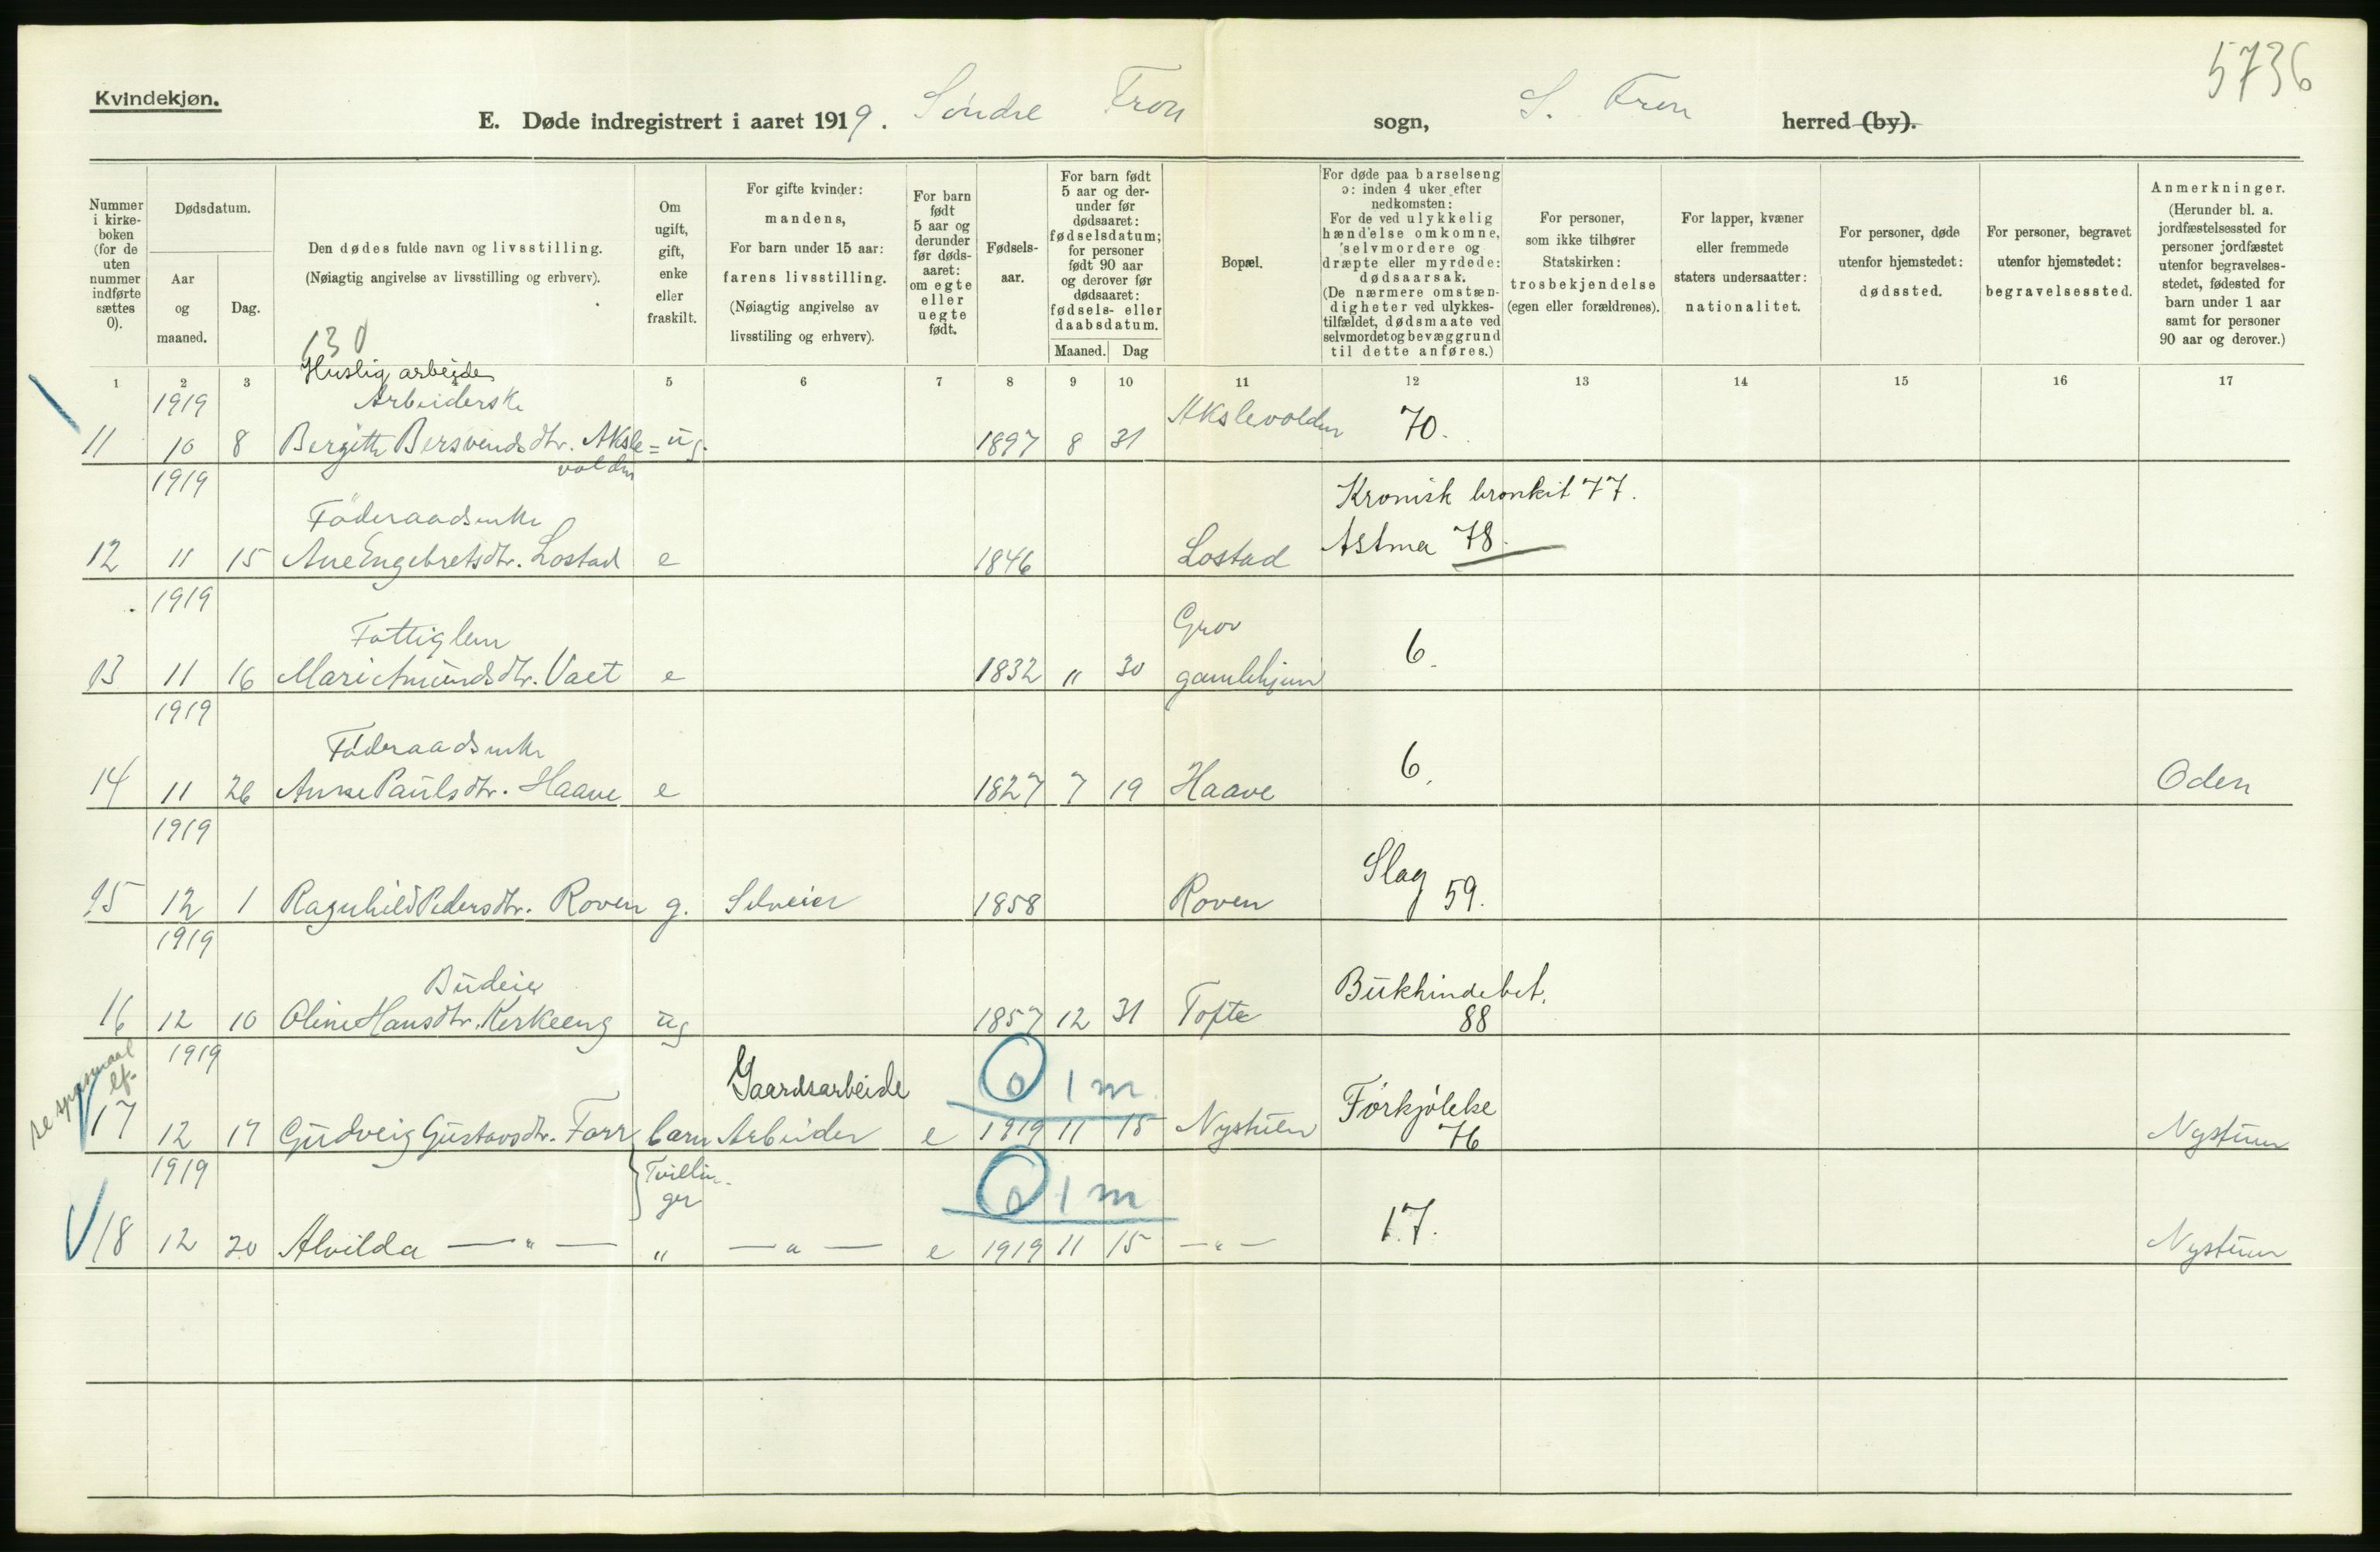 5736
Kvindekjøn.
E. Døde indregistrert i aaret 1919. Söndre Fron sogn, S. Fron herred (by).
Nummer i kirkeboken (for de uten nummer indførte sættes 0).
Dødsdatum.
Aar og maaned.
Dag.
Den dødes fulde navn og livsstilling.
(Nøiagtig angivelse av livsstilling og erhverv).
Om ugift, gift, enke eller fraskilt.
For gifte kvinder: mandens,
For barn under 15 aar: farens livsstilling.
(Nøiagtig angivelse av livsstiling og erhverv).
For barn født 5 aar og derunder før dødsaaret: om egte eller uegte født.
Fødselsaar.
For barn født 5 aar og derunder før dødsaaret: fødselsdatum; for personer født 90 aar og derover før dødsaaret: fødsels- eller daabsdatum.
Maaned. Dag
Bopæl.
For døde paa barselseng ɔ: inden 4 uker efter nedkomsten:
For de ved ulykkelig hændelse omkomne, selvmordere og dræpte eller myrdede: dødsaarsak.
(De nærmere omstændigheter ved ulykkestilfældet, dødsmaate ved selvmordet og bevæggrund til dette anføres.)
For personer, som ikke tilhører Statskirken: trosbekjendelse (egen eller forældrenes).
For lapper, kvæner eller fremmede staters undersaatter: nationalitet.
For personer, døde utenfor hjemstedet: dødssted.
For personer, begravet utenfor hjemstedet: begravelsessted.
Anmerkninger.
(Herunder bl. a. jordfæstelsessted for personer jordfæstet utenfor begravelsesstedet, fødested for barn under 1 aar samt for personer 90 aar og derover.)
130
1 2 3 5 6 7 8 9 10 11 12 13 14 15 16 17
Huslig arbeide
1919 Arbeiderske Akslevolden 70.
11 10 8 Bergitte Bersvendsdtr. Aksle= ug. 1897 8 31
volden
1919
Föderaadsenke Kronisk bronkit 77.
12 11 15 Ane Engebretsdtr. Lostad e 1846 Lostad Astma 78.
1919
Fattiglem Grov
13 11 16 Mari Amundsdtr. Vaet e 1832 11 30 gamlehjem 6.
1919
Föderaadsenke
14 11 26 Anne Paulsdtr. Haave e 1827 7 19 Haave 6. Oden
1919
15 12 1 Ragnhild Pedersdtr. Roven g. Selveier 1858 Roven Slag 59.
1919
Budeie Bukhindebet.
16 12 10 Oline Hansdtr. Kirkeeng ug 1857 12 31 Tofte 88
se spørsmaal
1919 Gaardsarbeide 0 1 m Forkjølelse
17 12 17 Gudveig Gustavsdtr. Forr barn Arbeider e 1919 11 15 Nystuen 76 Nystuen
1919 Tvillin- 0 1 m
ger
18 12 20 Alvilda — " — " — " — e 1919 11 15 — " — 17. Nystuen